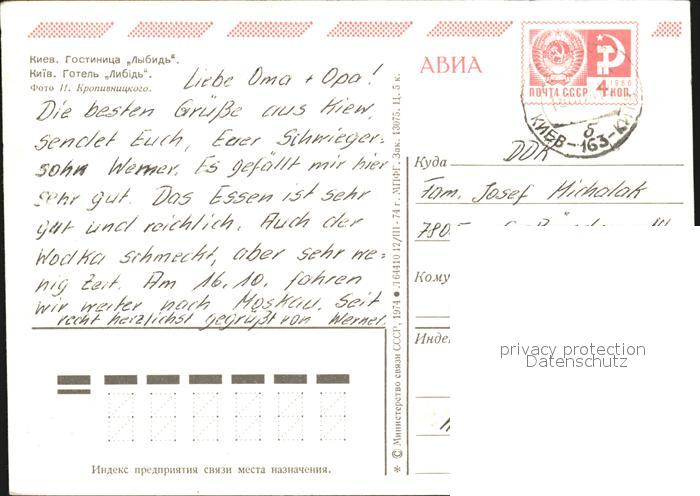 Киев. Гостиница „Лыбидь".
Київ. Готель „Либідь".
Фото И. Кропивницкого.
Liebe Oma + Opa!
Die besten Grüße aus Kiew,
sendet Euch, Euer Schwieger-
sohn Werner. Es gefällt mir hier
sehr gut. Das Essen ist sehr
gut und reichlich. Auch der
Wodka schmeckt, aber sehr we=
nig Zeit. Am 16.10. fahren
wir weiter nach Moskau. Seit
recht herzlichst gegrüßt von Werner.
Индекс предприятия связи места назначения.
* © Министерство связи СССР, 1974 ● Л 64410 12/III-74 г. МПФГ. Зак. 13075. Ц. 5 к.
АВИА
ПОЧТА СССР 4 КОП.
1966
КИЕВ-163-
б
DDR
Куда
Fam. Josef Michalak
Кому
Инде
privacy protection
Datenschutz